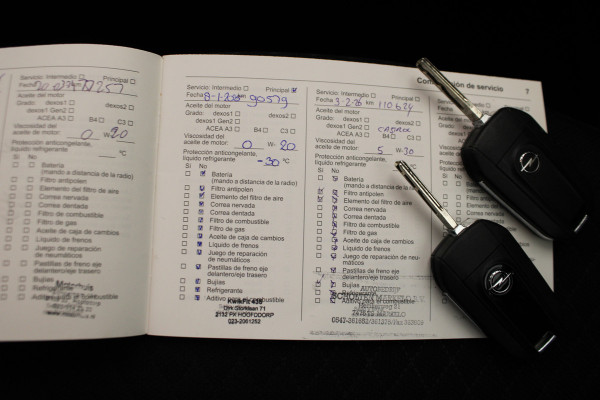 Servicio: Intermedio Principal
Fecha
Aceite del motor
Grado: dexos1 dexos2
dexos1 Gen2
ACEA A3 B4 C3
Viscosidad del
aceite de motor: 0 W-20
Protección anticongelante,
líquido refrigerante °C
Sí No
Batería
(mando a distancia de la radio)
Filtro antipolen
Elemento del filtro de aire
Correa nervada
Correa dentada
Filtro de combustible
Filtro de gas
Aceite de caja de cambios
Líquido de frenos
Juego de reparación
de neumáticos
Pastillas de freno eje
delantero/eje trasero
Bujías
Refrigerante
Servicio: Intermedio Principal
Fecha km 90579
Aceite del motor
Grado: dexos1 dexos2
dexos1 Gen2
ACEA A3 B4 C3
Viscosidad del
aceite de motor: 0 W-20
Protección anticongelante,
líquido refrigerante -30 °C
Sí No
Batería
(mando a distancia de la radio)
Filtro antipolen
Elemento del filtro de aire
Correa nervada
Correa dentada
Filtro de combustible
Filtro de gas
Aceite de caja de cambios
Líquido de frenos
Juego de reparación
de neumáticos
Pastillas de freno eje
delantero/eje trasero
Bujías
Refrigerante
Aditivo para el combustible
2132 PX HOOFDDORP
023-2061252
de servicio 7
Servicio: Intermedio Principal
Fecha 3-2-26 km 110624
Aceite del motor
Grado: dexos1
dexos1 Gen2
ACEA A3 B4
Viscosidad del
aceite de motor: 5 W-30
Protección anticongelante,
líquido refrigerante °C
Sí No
Batería
(mando a distancia de la radio)
Filtro antipolen
Elemento del filtro de aire
Correa nervada
Correa dentada
Filtro de combustible
Filtro de gas
Aceite de caja de cambios
Líquido de frenos
Juego de reparación de neu-
máticos
Pastillas de freno eje
delantero/eje trasero
Bujías
Refrigerante
Aditivo para el combustible